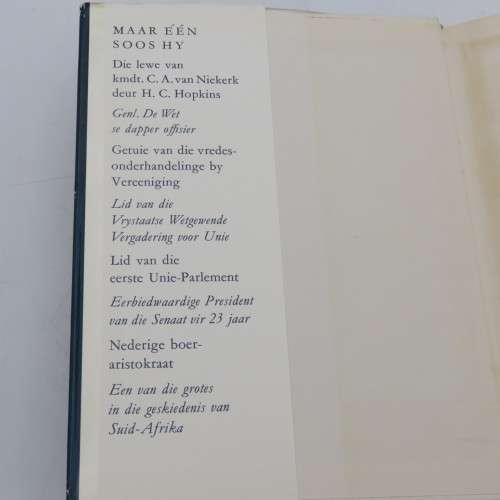 MAAR EÉN
SOOS HY
Die lewe van
kmdt. C. A. van Niekerk
deur H. C. Hopkins
Genl. De Wet
se dapper offisier
Getuie van die vredes-
onderhandelinge by
Vereeniging
Lid van die
Vrystaatse Wetgewende
Vergadering voor Unie
Lid van die
eerste Unie-Parlement
Eerbiedwaardige President
van die Senaat vir 23 jaar
Nederige boer-
aristokraat
Een van die grotes
in die geskiedenis van
Suid-Afrika